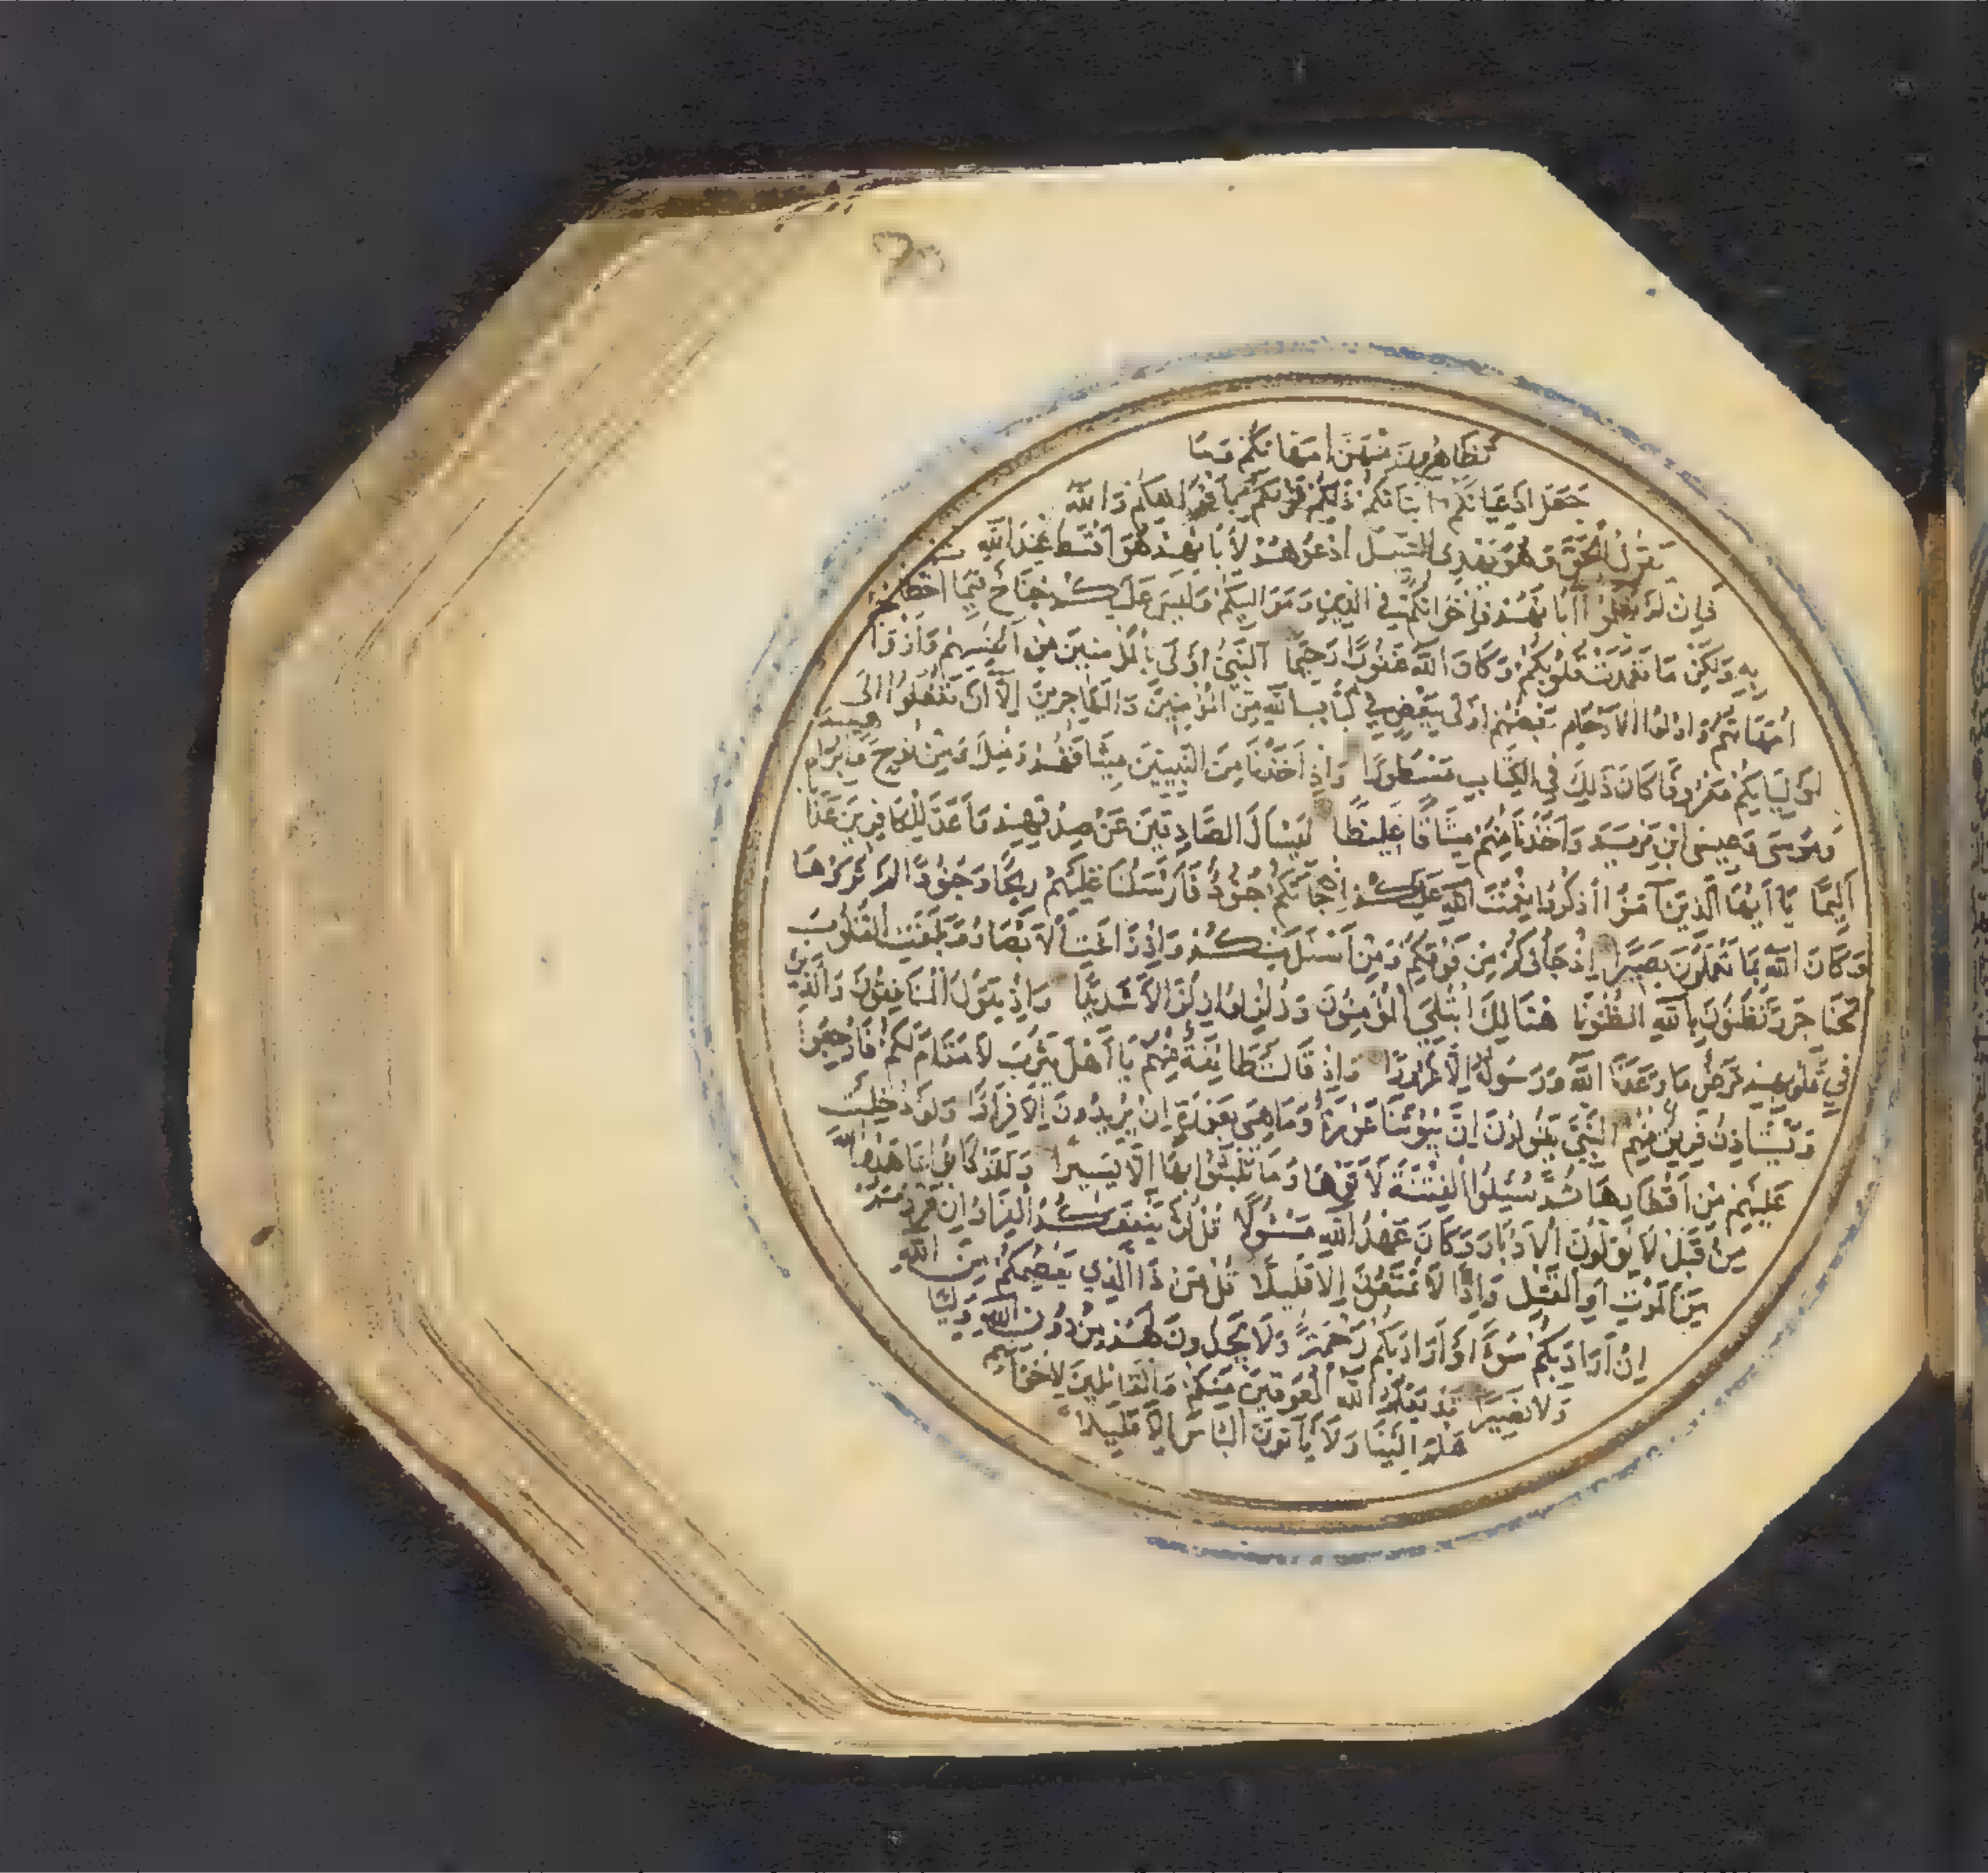 تظاهرون منهن امهاتكم وما
جعل ادعيائكم ابنائكم ذلكم قولكم بافواهكم والله
يقول الحق وهو يهدي السبيل ادعوهم لابائهم هو اقسط عند الله
فان لم تعلموا آبائهم فاخوانكم في الدين ومواليكم وليس عليكم جناح فيما اخطأتم
به ولكن ما تعمدت قلوبكم وكان الله غفورا رحيما النبي اولى بالمؤمنين من انفسهم وازوا
امهاتهم واولوا الارحام بعضهم اولى ببعض في كتاب الله من المؤمنين والمهاجرين الا ان تفعلوا الى
اوليائكم معروفا كان ذلك في الكتاب مسطورا واذ اخذنا من النبيين ميثاقهم ومنك ومن نوح وابراهيم
وموسى وعيسى ابن مريم واخذنا منهم ميثاقا غليظا ليسأل الصادقين عن صدقهم واعد للكافرين عذا
اليما يا ايها الذين آمنوا اذكروا نعمت الله عليكم اذ جائتكم جنود فارسلنا عليهم ريحا وجنودا لم تروها
وكان الله بما تعملون بصيرا اذ جاؤكم من فوقكم ومن اسفل منكم واذ زاغت الابصار وبلغت القلوب
الحناجر وتظنون بالله الظنونا هنالك ابتلي المؤمنون وزلزلوا زلزالا شديدا واذ يقول المنافقون والذين
في قلوبهم مرض ما وعدنا الله ورسوله الا غرورا واذ قالت طائفة منهم يا اهل يثرب لا مقام لكم فارجعوا
ويستاذن فريق منهم النبي يقولون ان بيوتنا عورة وما هي بعورة ان يريدون الا فرارا ولو دخلت
عليهم من اقطارها ثم سئلوا الفتنة لآتوها وما تلبثوا بها الا يسيرا ولقد كانوا عاهدوا الله
من قبل لا يولون الادبار وكان عهد الله مسئولا قل لن ينفعكم الفرار ان فررتم
من الموت او القتل واذا لا تمتعون الا قليلا قل من ذا الذي يعصمكم من الله
ان اراد بكم سوءا او اراد بكم رحمة ولا يجدون لهم من دون الله وليا
ولا نصيرا قد يعلم الله المعوقين منكم والقائلين لاخوانهم
هلم الينا ولا يأتون البأس الا قليلا